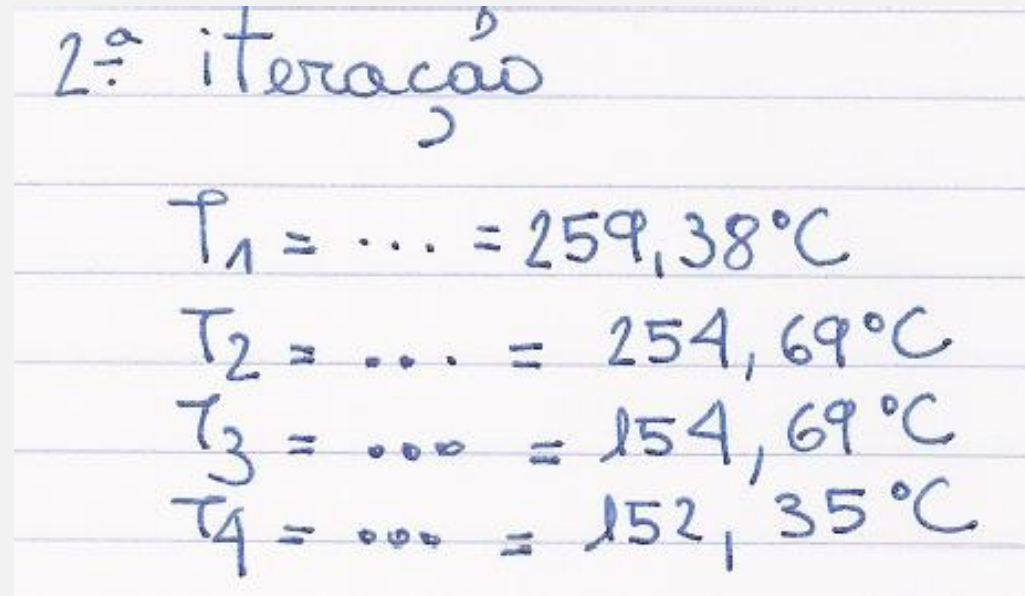 2ª iteração
T1 = ... = 259,38°C
T2 = ... = 254,69°C
T3 = ... = 154,69°C
T4 = ... = 152,35°C